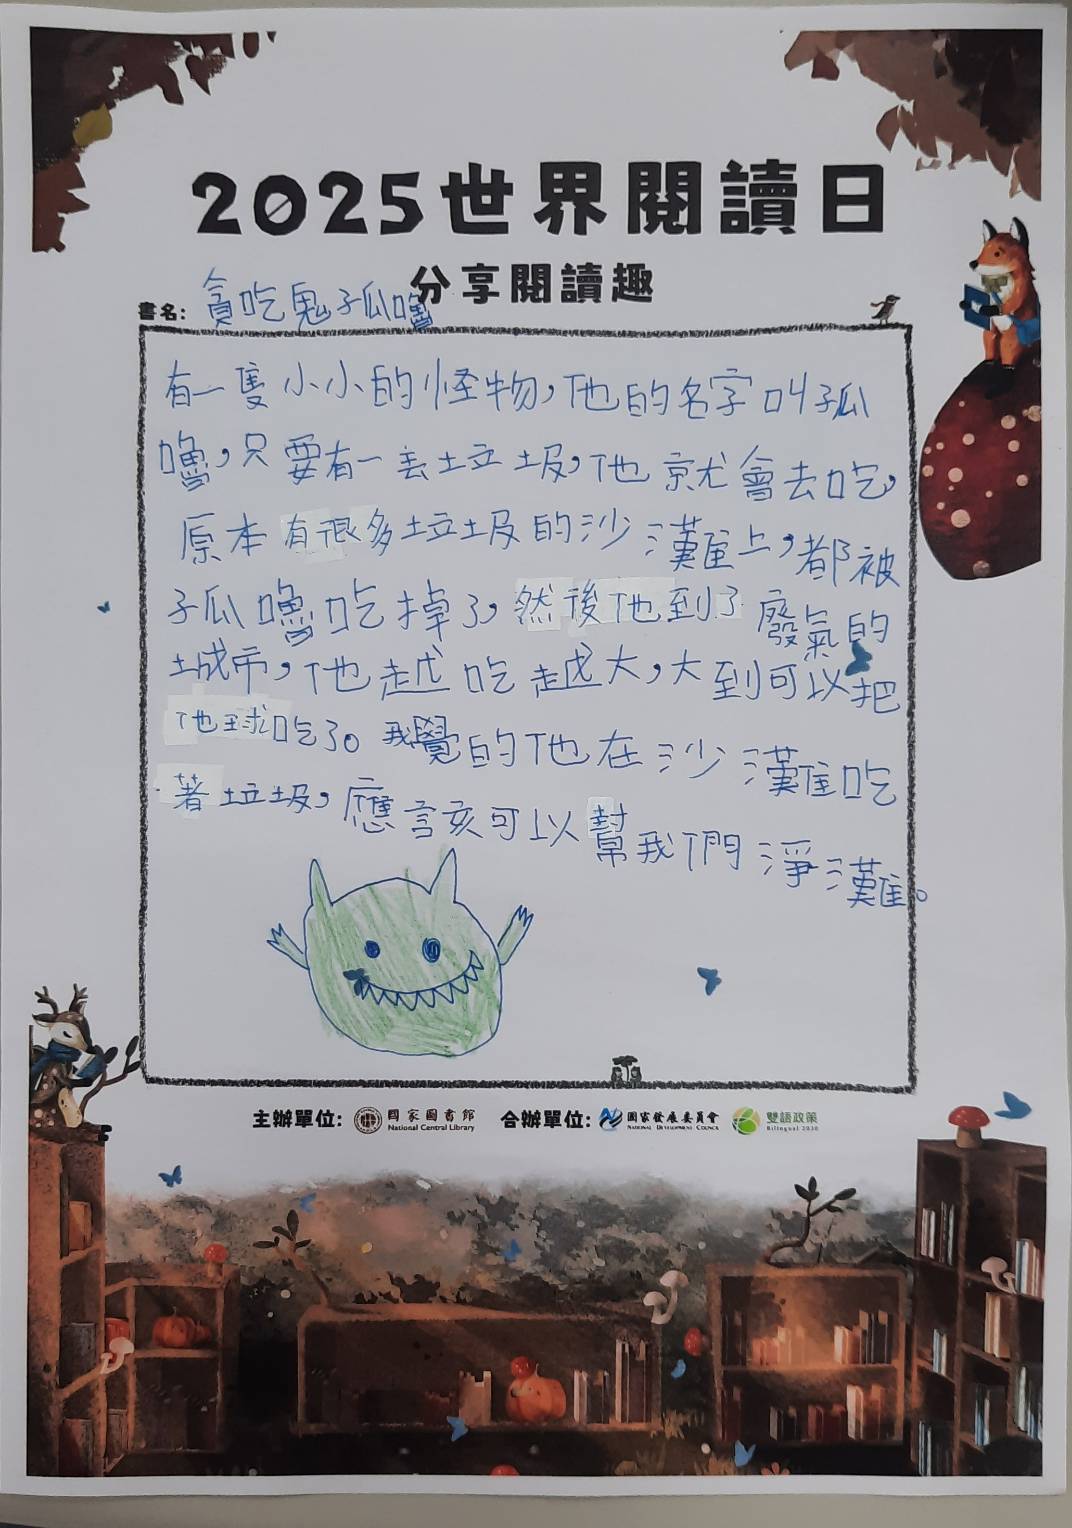 2025世界閱讀日
分享閱讀趣
書名: 貪吃鬼孑瓜嚕
有一隻小小的怪物，他的名字叫孤
嚕，只要有一丢垃圾，他就會去吃，
原本有很多垃圾的沙灘上，都被
孤嚕吃掉了，然後他到了廢氣的
城市，他越吃越大，大到可以把
地球吃了。我覺的他在沙灘吃
著垃圾，應該可以幫我們淨灘。
主辦單位: 國家圖書館 National Central Library 合辦單位: 國家發展委員會 National Development Council 雙語政策 Bilingual 2030